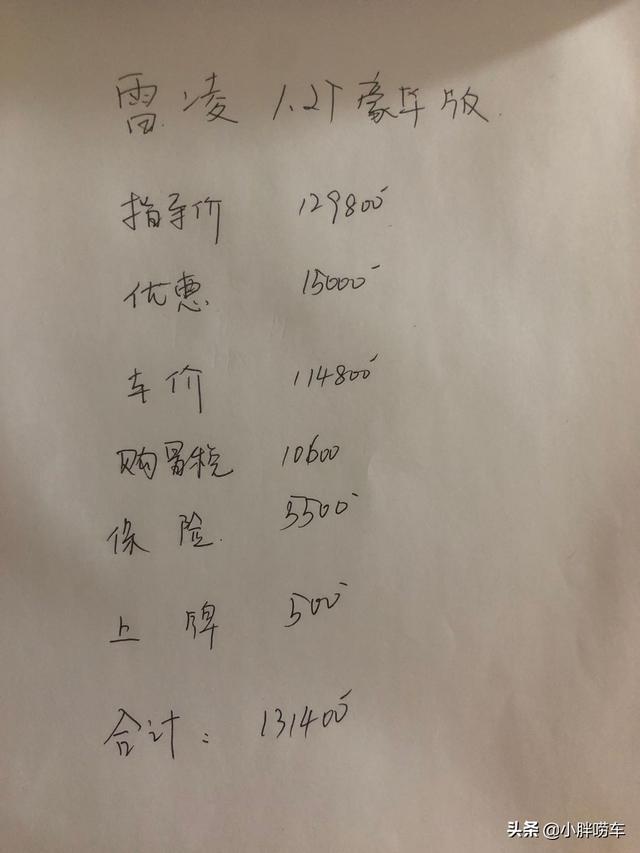 雷凌 1.2T豪华版
指导价 129800
优惠 15000
车价 114800
购置税 10600
保险 5500
上牌 500
合计: 131400
头条 @小胖唠车